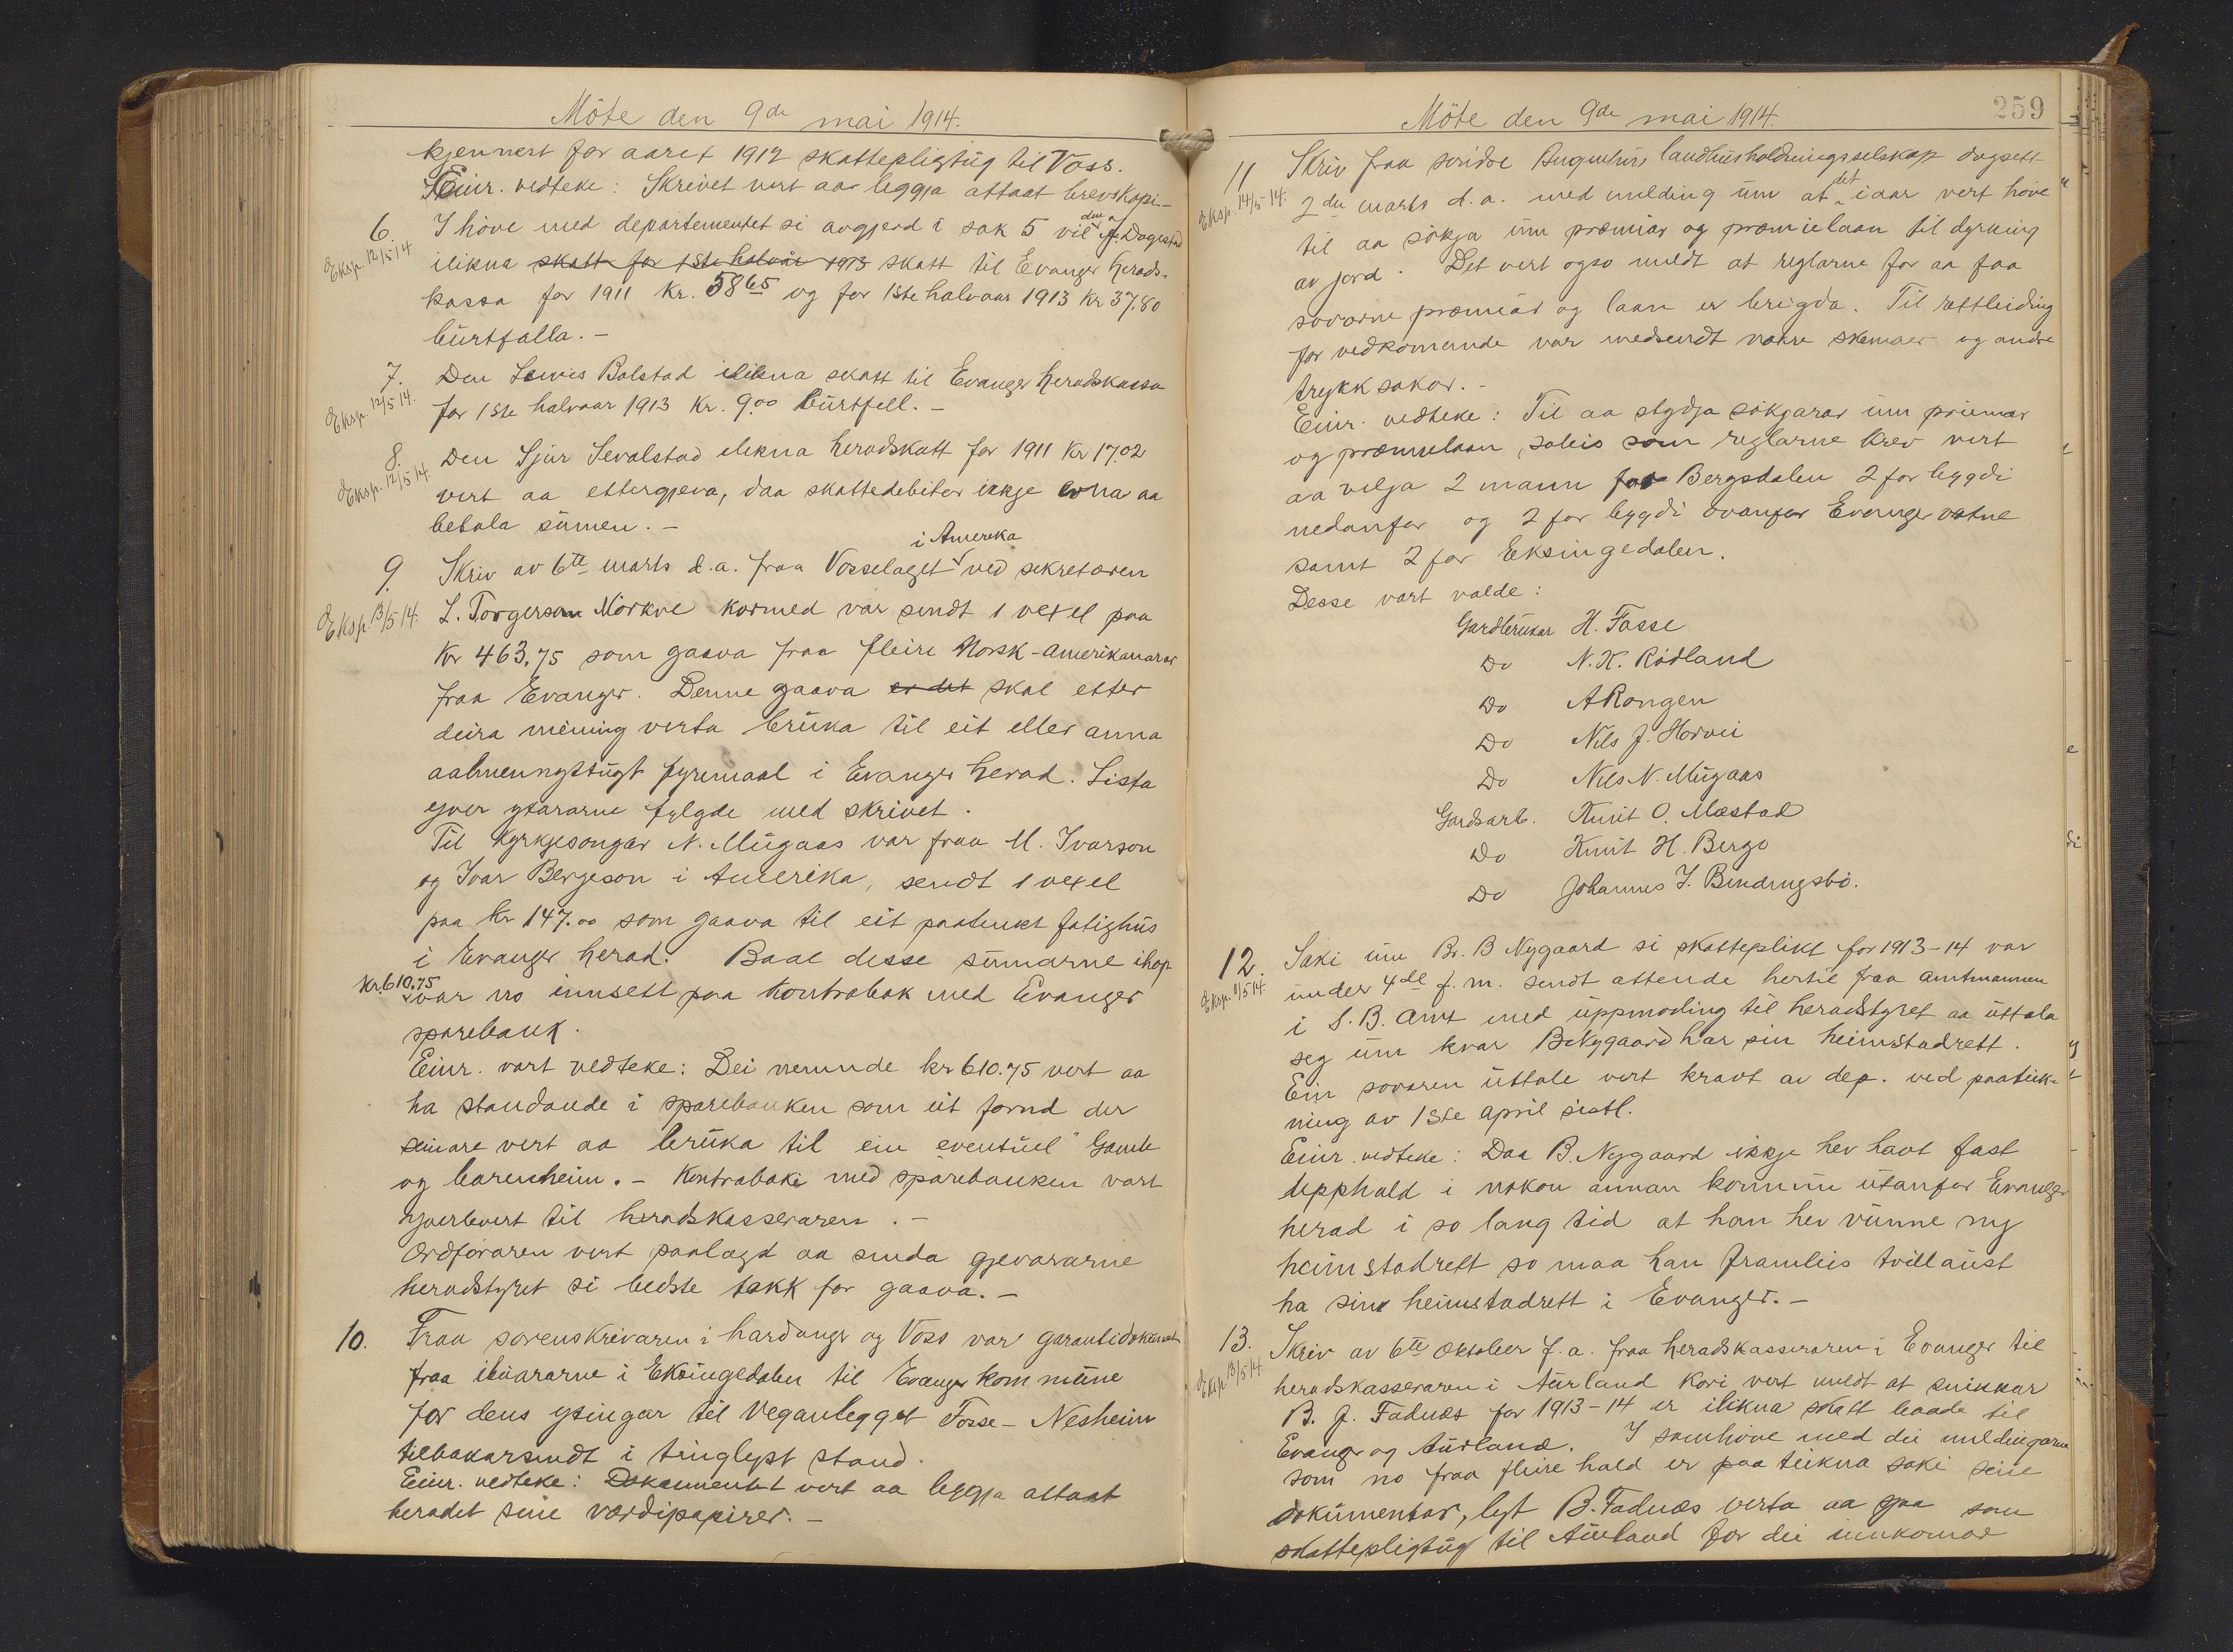 Möte den 9de mai 1914.
kjennest for aaret 1912 skattepligtug til Voss.
Einr. vedteke: Skrivet vert aa leggja attaat brevskapi.-
6. I höve med departementet si avgjerd i sak 5 vil den af J. Dagestad
Eksp. 12/5 14
ilikna skatt for 1ste halvår 1913 skatt til Evanger herads-
kassa for 1911 kr. 5865 og for 1ste halvaar 1913 kr 37.80
burtfalla.-
7. Den Lewis Bolstad ilikna skatt til Evanger heradskassa
Eksp. 12/5 14.
for 1ste halvaar 1913 kr. 9.00 burtfell.-
8. Den Sjur Sevalstad ilikna heradskatt for 1911 kr 17.02
Eksp. 12/5 14.
vert aa ettergjeva, daa skattedebiter ikkje evna aa
betala sumen.-
i Amerika
9. Skriv av 6te marts d.a. fraa Vosselaget ved sekretæren
Eksp. 13/5 14.
L. Torgerson Mörkve kormed var sendt 1 vexel paa
kr 463.75 som gaava fraa fleire Norsk-amerikanarar
fraa Evanger. Denne gaava er det skal etter
deira meining verta bruka til eit eller anna
aalmennyttugt fyremaal i Evanger herad. Lista
yver ytararne fylgde med skrivet.
Til kyrkjesongar N. Mugaas var fraa M. Ivarson
og Ivar Bergeson i Amerika, sendt 1 vexel
paa kr 147.00 som gaava til eit paatenkt fatighus
i Evanger herad. Baae desse sumarne ihop
kr. 610.75
var no innsett paa kontrabok med Evanger
sparebank.
Einr. vart vedteke: Dei nemnde kr 610.75 vert aa
ha standande i sparebanken som eit fornd der
seinare vert aa bruka til ein eventuel Gamle
og barenheim.- Kontraboki med sparebanken vart
yverlevert til heradskasseraren.-
Ordföraren vert paalagd aa senda gjevararne
heradstyret si bedste takk for gaava.-
10. Fraa sorenskrivaren i hardanger og Voss var garantidokument
fraa ibuararne i Eksingedalen til Evanger kommune
for dens ytingar til Veganlegget Fosse-Nesheim
tilbakarsendt i tinglyst stand.
Einr. vedteke: Dokumentet vert aa leggja attaat
heradet sine værdipapirer.-
Möte den 9de mai 1914.
259
11 Skriv fraa söndre Bergenhus landhusholdningsselskap dagsett
Eksp. 14/5 14.
2den marts d.a. med melding um at det iaar vert höve
til aa sökja um præmiar og præmielaan til dyrking
av jord. Det vert ogso meldt at reglarne for aa faa
sovorne præmiar og laan er brigda. Til rettleiding
for vedkomande var medsendt nokre skemaer og andre
trykksakor.-
Einr. vedteke: Til aa stydja sökjarar um priemar
og præmielaan, soleis som reglarne krev vert
aa velja 2 mann for Bergsdalen 2 for bygdi
nedanfor og 2 for bygdi ovanfor Evanger vatne
samt 2 for Eksingedalen.
Desse vart valde:
Gardbrukar H. Fosse
Do N. K. Rödland
Do A Rongen
Do Nils J. Horvei
Do Nils N. Mugaas
Gardsarb. Knut O. Mæstad
Do Knut H. Bergo
Do Johannes I. Bendingsbö.
12. Saki um Br. B Nygaard si skatteplikt for 1913-14 var
Eksp. 11/5 14
under 4de f. m. sendt attende hertil fraa amtmannen
i S. B. amt med uppmoding til heradstyret aa uttala
seg um kvar B. Nygaard har sin heimstadrett.
Ein sovoren uttale vert kravt av dep. ved paateik-
ning av 1ste april sistl.
Einr. vedteke: Daa B. Nygaard ikkje hev havt fast
upphald i nokon annan kommun utanfor Evanger
herad i so lang tid at han hev vunne ny
heimstadrett so maa han framleis tvillaust
ha sin heimstadrett i Evanger.-
13. Skriv av 6te Oktober f.a. fraa heradskasseraren i Evanger til
Eksp. 13/5 14
heradskasseraren i Aurland kori vert meldt at snikkar
B. J. Fadnes for 1913-14 er ilikna skatt baade til
Evanger og Aurland. I samhöve med dei meldingarne
som no fraa fleire hald er paa teikna saki seine
dokumentar, lyt B. Fadnæs verta aa sjaa som
skattepligtug til Aurland for dei innkomor